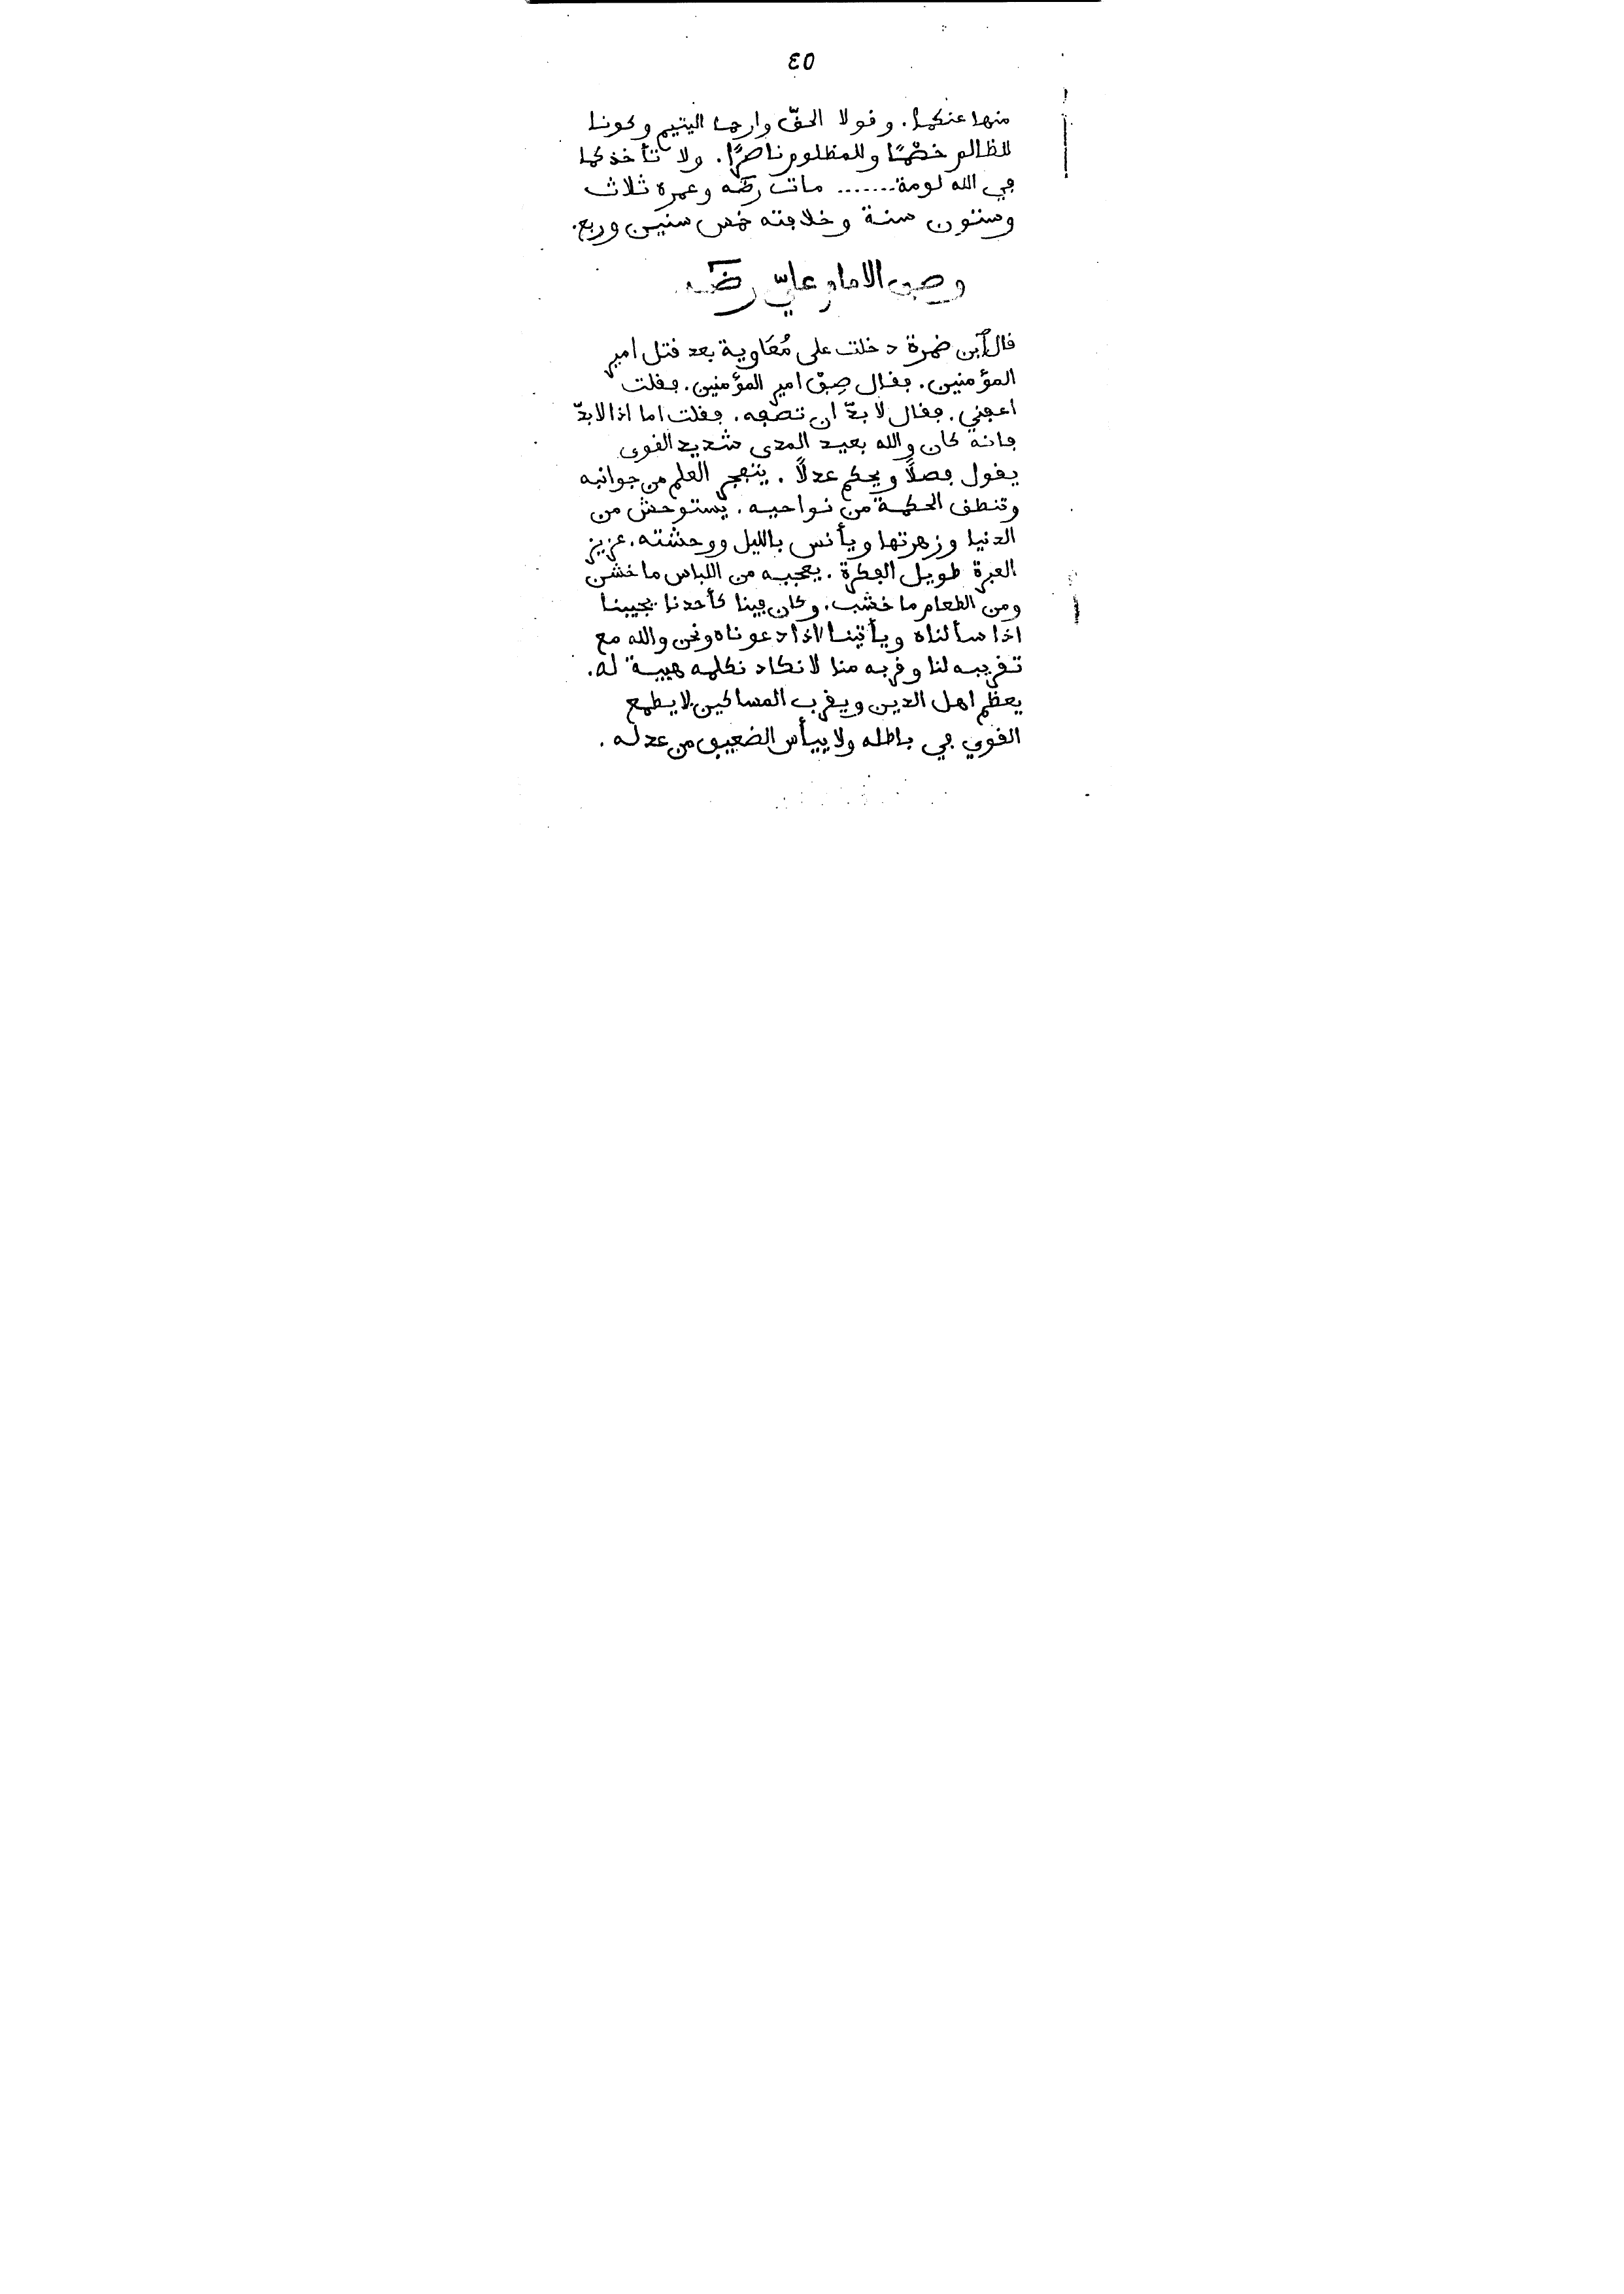 ٤٥
منها عنكما. وقولا الحقّ وارحما اليتيم وكونا
للظالم خصْمًا وللمظلوم ناصرًا. ولا تأخذكما
في الله لومة....... مات رضه وعمره ثلاث
وستون سنة وخلافته خمس سنين وربع.
وصف الامام عليّ رضه
قال ٱبن ضمرة دخلت على مُعَاوية بعد قتل امير
المؤمنين. فقال صِفْ امير المؤمنين. فقلت
اعفني. فقال لا بدّ ان تصفه. فقلت اما اذا لا بدّ
فانه كان والله بعيد المدى شديد القوى
يقول فصلًا ويحكم عدلًا. يتفجر العلم من جوانبه
وتنطف الحكمة من نواحيه. يستوحش من
الدنيا وزهرتها ويأنس بالليل ووحشته. عزيز
العبرة طويل الفكرة. يعجبه من اللباس ما خشن
ومن الطعام ما خشب. وكان فينا كأحدنا يجيبنا
اذا سألناه ويأتينا اذا دعوناه ونحن والله مع
تقريبه لنا وقربه منا لا نكاد نكلمه هيبة له.
يعظم اهل الدين ويقرب المساكين لا يطمع
القوي في باطله ولا ييأس الضعيف من عدله.